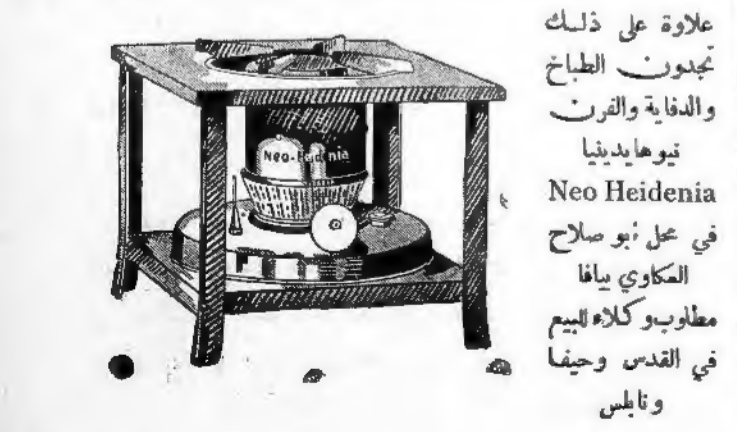 علاوة على ذلك
تجدون الطباخ
والدفاية والفرن
نيوهايدينيا
Neo Heidenia
في محل أبو صلاح
المكاوي بيافا
مطلوب وكلاء للبيع
في القدس وحيفا
ونابلس
Neo-Heidenia